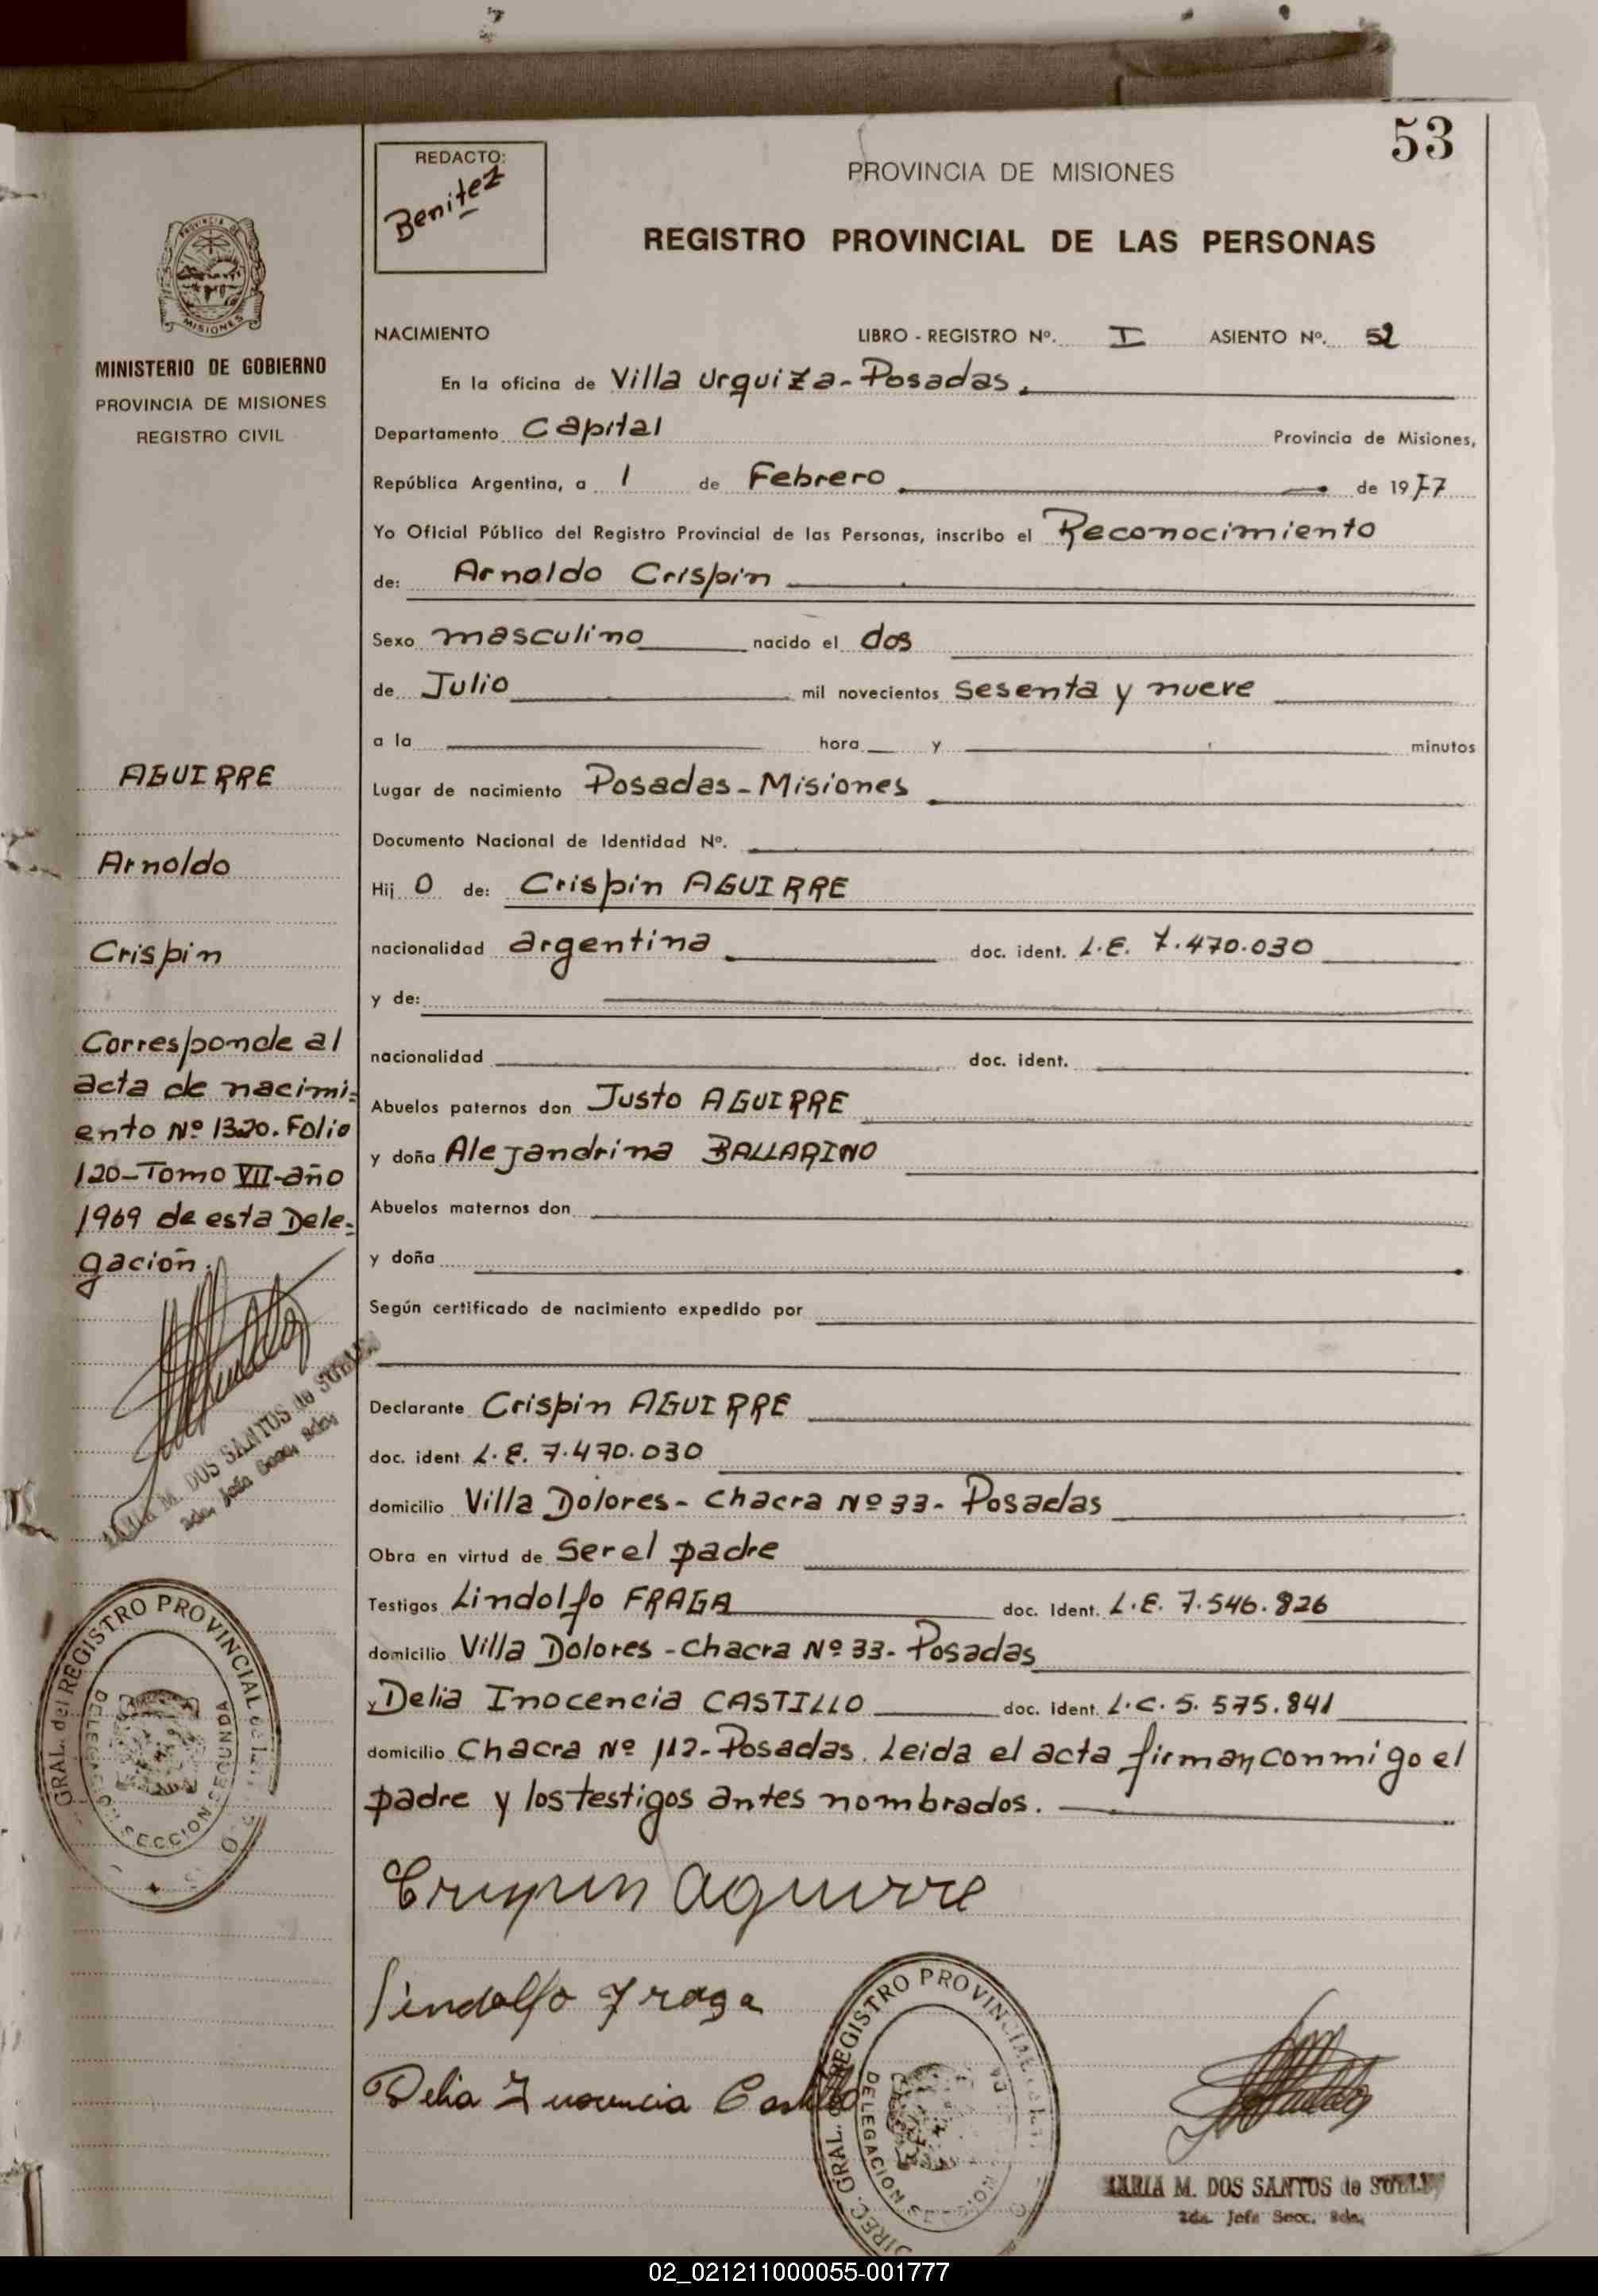 53
REDACTO:
Benitez
PROVINCIA DE MISIONES
REGISTRO PROVINCIAL DE LAS PERSONAS
PROVINCIA DE
MISIONES
MINISTERIO DE GOBIERNO
PROVINCIA DE MISIONES
REGISTRO CIVIL
NACIMIENTO LIBRO - REGISTRO Nº. I ASIENTO Nº. 52
En la oficina de Villa Urquiza - Posadas.
Departamento Capital Provincia de Misiones,
República Argentina, a 1 de Febrero de 1977
Yo Oficial Público del Registro Provincial de las Personas, inscribo el Reconocimiento
de: Arnoldo Crispin
Sexo masculino nacido el dos
de Julio mil novecientos sesenta y nueve
a la hora y minutos
Lugar de nacimiento Posadas - Misiones
Documento Nacional de Identidad Nº.
Hij o de: Crispin AGUIRRE
nacionalidad argentina doc. ident. L.E. 7.470.030
y de:
nacionalidad doc. ident.
Abuelos paternos don Justo AGUIRRE
y doña Alejandrina BALLARINO
Abuelos maternos don
y doña
Según certificado de nacimiento expedido por
Declarante Crispin AGUIRRE
doc. ident. L.E. 7.470.030
domicilio Villa Dolores - Chacra Nº 33 - Posadas
Obra en virtud de Ser el padre
Testigos Lindolfo FRAGA doc. Ident. L.E. 7.546.826
domicilio Villa Dolores - Chacra Nº 33 - Posadas
y Delia Inocencia CASTILLO doc. Ident. L.C. 5.575.841
domicilio Chacra Nº 112 - Posadas. Leida el acta firman conmigo el
padre y los testigos antes nombrados.
Crispin Aguirre
Lindolfo Fraga
Delia Inocencia Castillo
AGUIRRE
Arnoldo
Crispin
Corresponde al
acta de nacimi-
ento Nº 1320. Folio
120 - Tomo VII - año
1969 de esta Dele-
gación.
MARIA M. DOS SANTOS de
2da. Jefe Secc. 2da.
GRAL. del REGISTRO PROVINCIAL de las
DELEGACION SECCION SEGUNDA
DIREC. GRAL. REGISTRO PROVINCIAL
DELEGACION
MARIA M. DOS SANTOS de
2da. Jefe Secc. 2da.
02_021211000055-001777